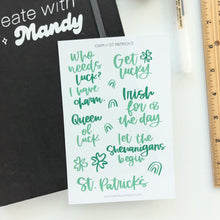 eate with
Mandy
Who
needs
luck?
I have
charm.
Get
lucky!
Irish
for
the day
Queen
of
luck
let the
Shenanigans
begin
St. Patricks